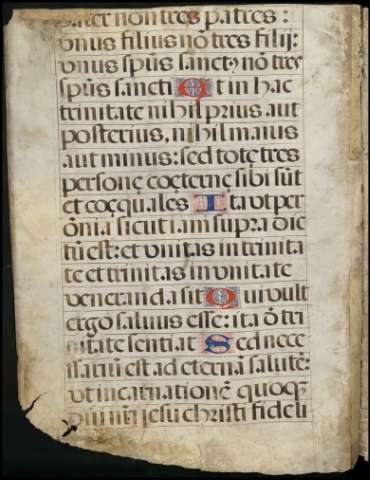 pater non tres patres :
vnus filius nō tres filij:
vnus spūs sanct⁹ nō tres
spūs sancti Et in hac
trinitate nihil prius aut
posterius, nihil maius
aut minus: sed totę tres
personę coęternę sibi sūt
et coęquales Ita vt per
ōnia sicut iam supra dic
tū est: et vnitas in trinita
te et trinitas in vnitate
veneranda sit Qui vult
ergo saluus esse: ita ō tri
nitate sentiat Sed nece
ssariū est ad eternā salutē:
vt incarnationē quoqꝫ
dn̄i nr̄i jesu christi fideli